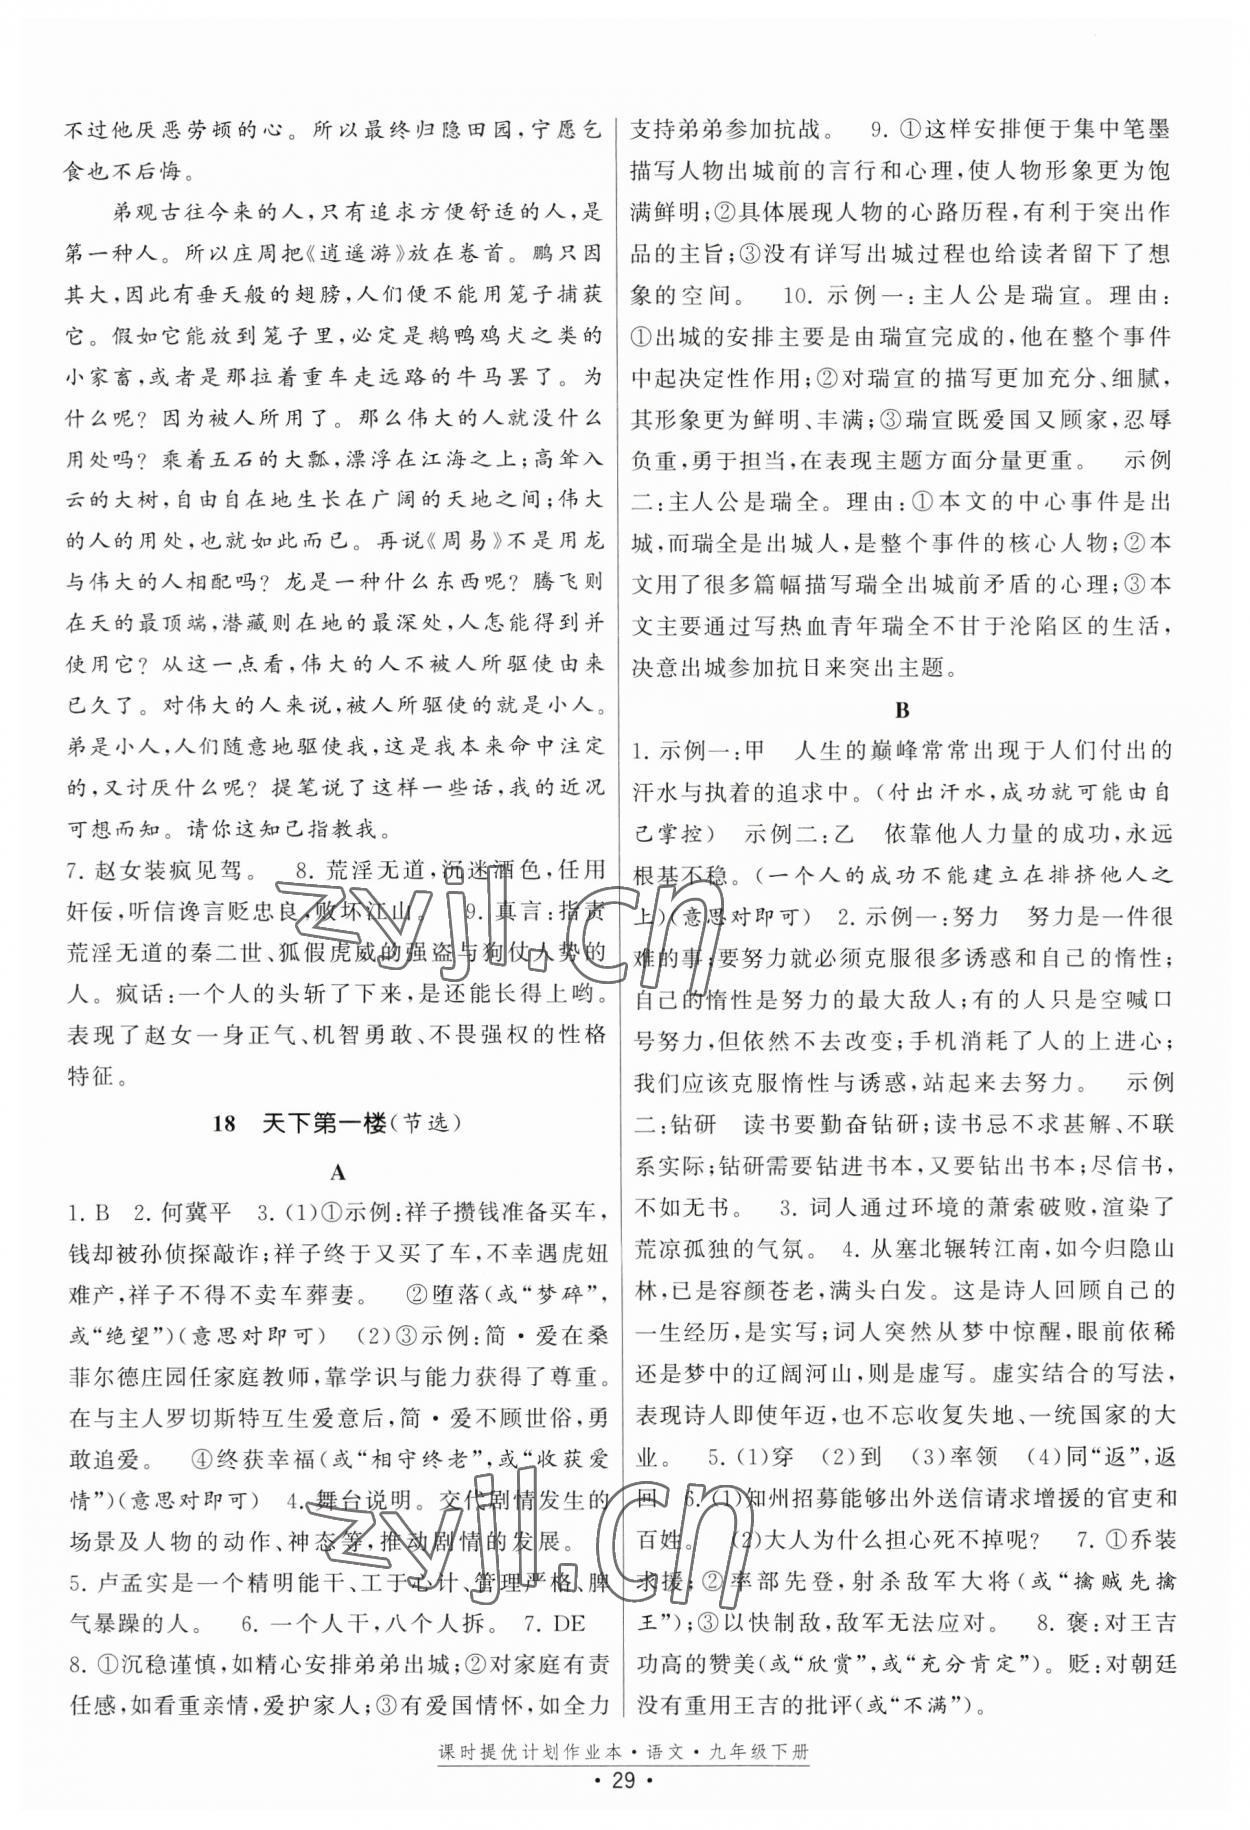 不过他厌恶劳顿的心。所以最终归隐田园,宁愿乞
食也不后悔。
弟观古往今来的人,只有追求方便舒适的人,是
第一种人。所以庄周把《逍遥游》放在卷首。鹏只因
其大,因此有垂天般的翅膀,人们便不能用笼子捕获
它。假如它能放到笼子里,必定是鹅鸭鸡犬之类的
小家畜,或者是那拉着重车走远路的牛马罢了。为
什么呢?因为被人所用了。那么伟大的人就没什么
用处吗?乘着五石的大瓢,漂浮在江海之上;高耸入
云的大树,自由自在地生长在广阔的天地之间;伟大
的人的用处,也就如此而已。再说《周易》不是用龙
与伟大的人相配吗?龙是一种什么东西呢?腾飞则
在天的最顶端,潜藏则在地的最深处,人怎能得到并
使用它?从这一点看,伟大的人不被人所驱使由来
已久了。对伟大的人来说,被人所驱使的就是小人。
弟是小人,人们随意地驱使我,这是我本来命中注定
的,又讨厌什么呢?提笔说了这样一些话,我的近况
可想而知。请你这知己指教我。
7. 赵女装疯见驾。 8. 荒淫无道,沉迷酒色,任用
奸佞,听信谗言贬忠良,败坏江山。 9. 真言:指责
荒淫无道的秦二世、狐假虎威的强盗与狗仗人势的
人。疯话:一个人的头斩了下来,是还能长得上哟。
表现了赵女一身正气、机智勇敢、不畏强权的性格
特征。
18 天下第一楼(节选)
A
1. B 2. 何冀平 3. (1)①示例:祥子攒钱准备买车,
钱却被孙侦探敲诈;祥子终于又买了车,不幸遇虎妞
难产,祥子不得不卖车葬妻。 ②堕落(或“梦碎”,
或“绝望”)(意思对即可) (2)③示例:简·爱在桑
菲尔德庄园任家庭教师,靠学识与能力获得了尊重。
在与主人罗切斯特互生爱意后,简·爱不顾世俗,勇
敢追爱。 ④终获幸福(或“相守终老”,或“收获爱
情”)(意思对即可) 4. 舞台说明。交代剧情发生的
场景及人物的动作、神态等,推动剧情的发展。
5. 卢孟实是一个精明能干、工于心计、管理严格、脾
气暴躁的人。 6. 一个人干,八个人拆。 7. DE
8. ①沉稳谨慎,如精心安排弟弟出城;②对家庭有责
任感,如看重亲情,爱护家人;③有爱国情怀,如全力
支持弟弟参加抗战。 9. ①这样安排便于集中笔墨
描写人物出城前的言行和心理,使人物形象更为饱
满鲜明;②具体展现人物的心路历程,有利于突出作
品的主旨;③没有详写出城过程也给读者留下了想
象的空间。 10. 示例一:主人公是瑞宣。理由:
①出城的安排主要是由瑞宣完成的,他在整个事件
中起决定性作用;②对瑞宣的描写更加充分、细腻,
其形象更为鲜明、丰满;③瑞宣既爱国又顾家,忍辱
负重,勇于担当,在表现主题方面分量更重。 示例
二:主人公是瑞全。理由:①本文的中心事件是出
城,而瑞全是出城人,是整个事件的核心人物;②本
文用了很多篇幅描写瑞全出城前矛盾的心理;③本
文主要通过写热血青年瑞全不甘于沦陷区的生活,
决意出城参加抗日来突出主题。
B
1. 示例一:甲 人生的巅峰常常出现于人们付出的
汗水与执着的追求中。(付出汗水,成功就可能由自
己掌控) 示例二:乙 依靠他人力量的成功,永远
根基不稳。(一个人的成功不能建立在排挤他人之
上)(意思对即可) 2. 示例一:努力 努力是一件很
难的事;要努力就必须克服很多诱惑和自己的惰性;
自己的惰性是努力的最大敌人;有的人只是空喊口
号努力,但依然不去改变;手机消耗了人的上进心;
我们应该克服惰性与诱惑,站起来去努力。 示例
二:钻研 读书要勤奋钻研;读书忌不求甚解、不联
系实际;钻研需要钻进书本,又要钻出书本;尽信书,
不如无书。 3. 词人通过环境的萧索破败,渲染了
荒凉孤独的气氛。 4. 从塞北辗转江南,如今归隐山
林,已是容颜苍老,满头白发。这是诗人回顾自己的
一生经历,是实写;词人突然从梦中惊醒,眼前依稀
还是梦中的辽阔河山,则是虚写。虚实结合的写法,
表现诗人即使年迈,也不忘收复失地、一统国家的大
业。 5. (1)穿 (2)到 (3)率领 (4)同“返”,返
回 6. (1)知州招募能够出外送信请求增援的官吏和
百姓。 (2)大人为什么担心死不掉呢? 7. ①乔装
求援;②率部先登,射杀敌军大将(或“擒贼先擒
王”);③以快制敌,敌军无法应对。 8. 褒:对王吉
功高的赞美(或“欣赏”,或“充分肯定”)。贬:对朝廷
没有重用王吉的批评(或“不满”)。
课时提优计划作业本·语文·九年级下册
·29·
zyjl.cn
zyjl.cn